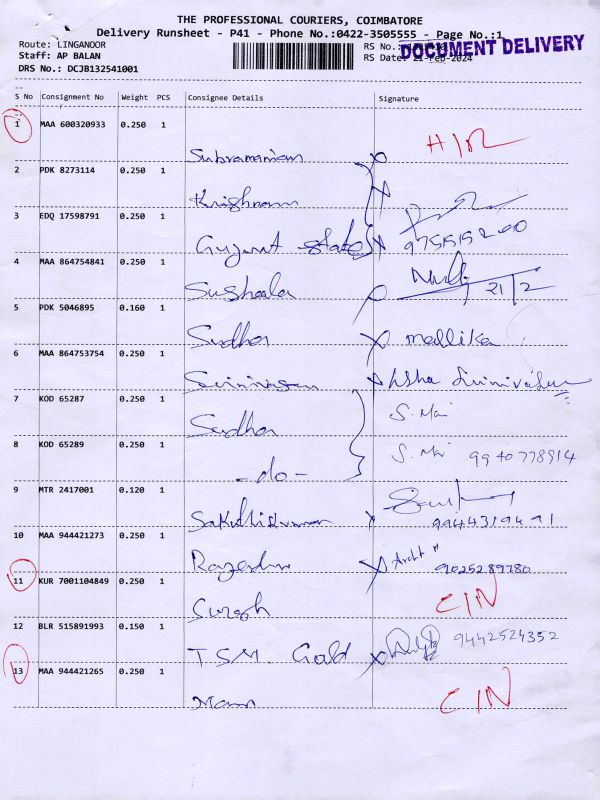 THE PROFESSIONAL COURIERS, COIMBATORE
Delivery Runsheet - P41 - Phone No.:0422-3505555 - Page No.:1
Route: LINGANOOR
RS No.:
DOCUMENT DELIVERY
Staff: AP BALAN
RS Date: 21-Feb-2024
DRS No.: DCJB132541001
S No Consignment No Weight PCS Consignee Details Signature
1 MAA 600320933 0.250 1
Subramaniam
2 PDK 8273114 0.250 1
Krishnam
3 EDQ 17598791 0.250 1
Gujarat state
4 MAA 864754841 0.250 1
Susheela 21/2
5 PDK 5046895 0.160 1
Sudha mallika
6 MAA 864753754 0.250 1
Srinivasan Usha Srinivasan
7 KOD 65287 0.250 1
Sudha S. Mai
8 KOD 65289 0.250 1
-do- S. Mai 9940778914
9 MTR 2417001 0.120 1
Sakthikumar
10 MAA 944421273 0.250 1
Rajesh 9025289780
11 KUR 7001104849 0.250 1
Suresh C/N
12 BLR 515891993 0.150 1
T.S.M. Gold 9442524352
13 MAA 944421265 0.250 1
Mann C/N